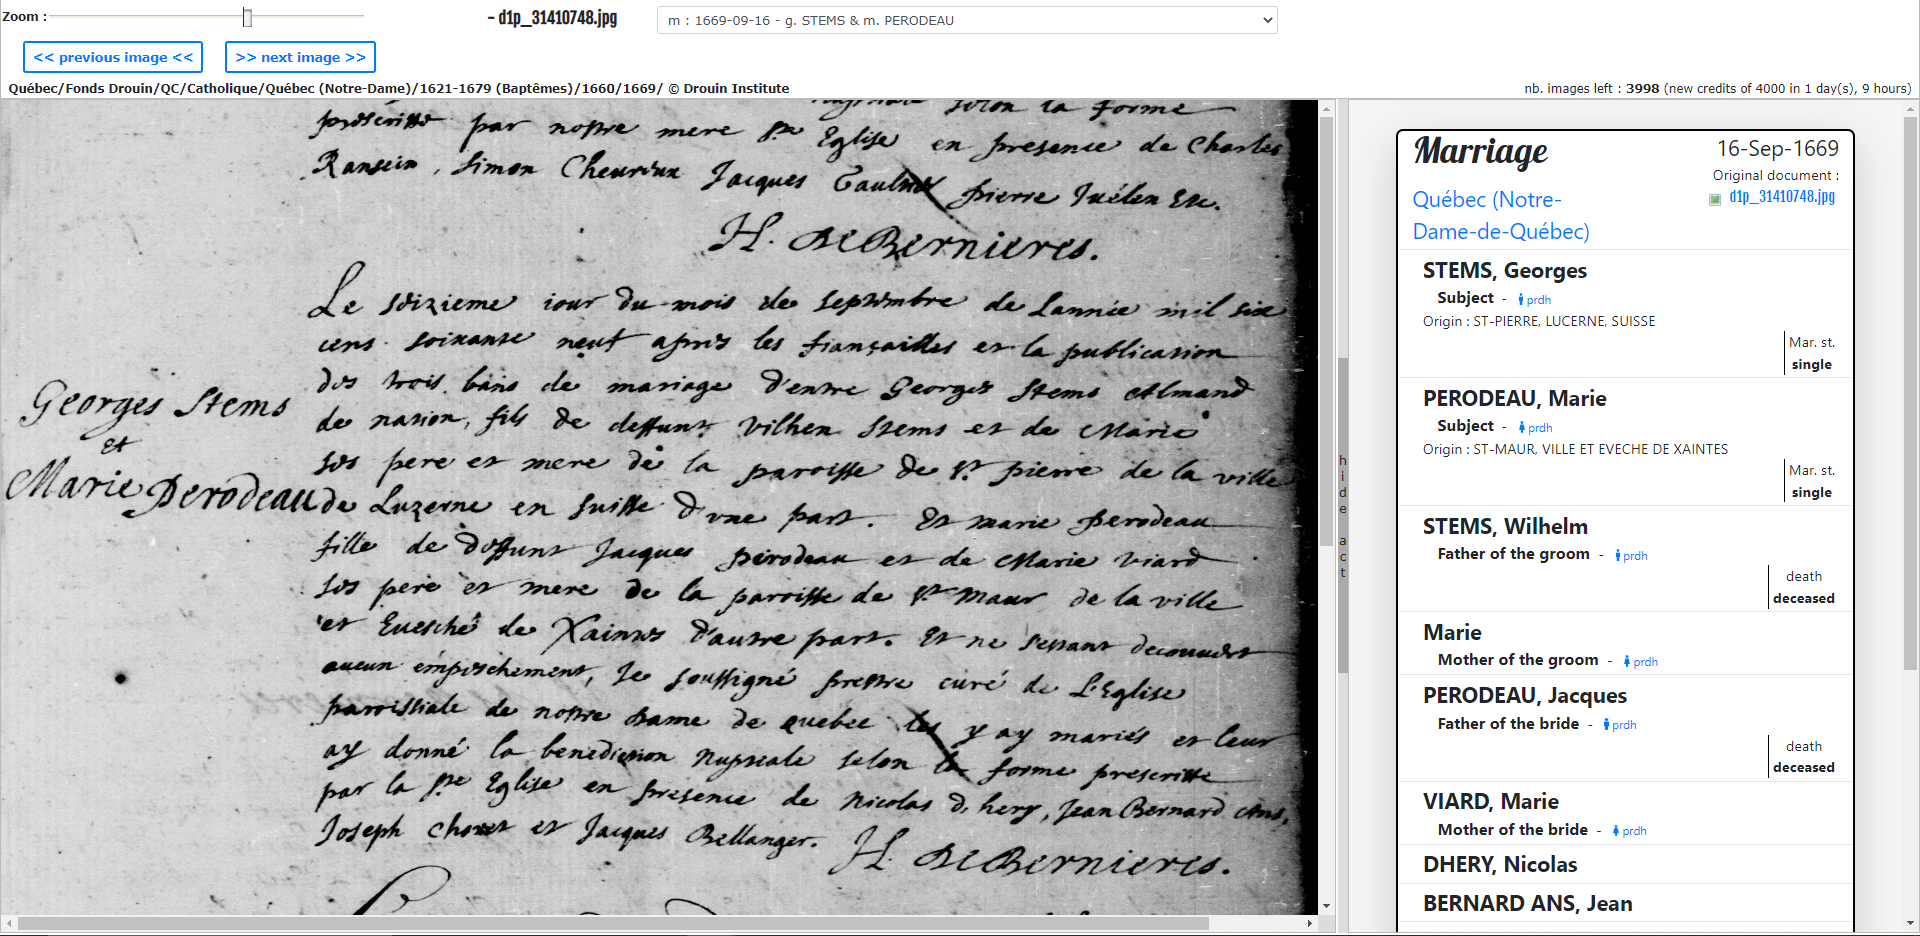 Zoom :
– d1p_31410748.jpg
m : 1669-09-16 - g. STEMS & m. PERODEAU
<< previous image <<
>> next image >>
Québec/Fonds Drouin/QC/Catholique/Québec (Notre-Dame)/1621-1679 (Baptêmes)/1660/1669/ © Drouin Institute
nb. images left : 3998 (new credits of 4000 in 1 day(s), 9 hours)
selon la forme
prescritte par nostre mere Ste Eglise en presence de Charles
Simon Jacques pierre &c.
H. de Bernieres.
Le seizieme iour du mois de septembre de Lannée mil six
cens soixante neuf apres les fiançailles et la publication
des trois bans de mariage d'entre Georges Stems Almand
de nation, fils de deffunt Vilhem Stems et de Marie
ses pere et mere de la paroisse de St pierre de la ville
de Luzerne en Suisse d'vne part. Et marie perodeau
fille de deffunt Jacques perodeau et de Marie viard
ses pere et mere de la paroisse de St Maur de la ville
et Euesché de Xaintes d'autre part. Et ne sestant decouuert
aucun empeschement, Je soussigné prestre curé de L'Eglise
paroissiale de nostre dame de quebec les y ay mariés et leur
ay donné la benediction Nuptiale selon la forme prescritte
par la Ste Eglise en presence de Nicolas d'hery, Jean Bernard Ans,
Joseph et Jacques Bellanger.
H. de Bernieres.
Georges Stems
et
Marie Perodeau
hide act
Marriage
16-Sep-1669
Original document :
d1p_31410748.jpg
Québec (Notre-
Dame-de-Québec)
STEMS, Georges
Subject - prdh
Origin : ST-PIERRE, LUCERNE, SUISSE
Mar. st.
single
PERODEAU, Marie
Subject - prdh
Origin : ST-MAUR, VILLE ET EVECHE DE XAINTES
Mar. st.
single
STEMS, Wilhelm
Father of the groom - prdh
death
deceased
Marie
Mother of the groom - prdh
PERODEAU, Jacques
Father of the bride - prdh
death
deceased
VIARD, Marie
Mother of the bride - prdh
DHERY, Nicolas
BERNARD ANS, Jean